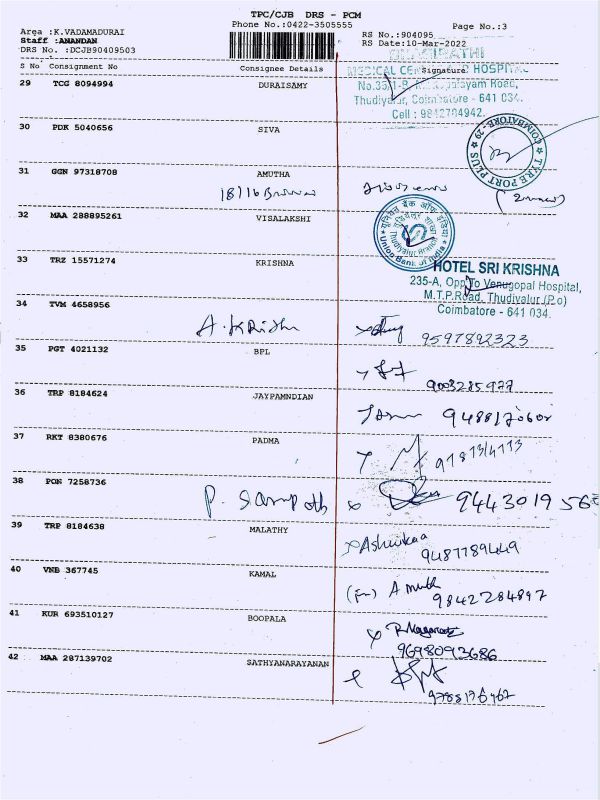 TPC/CJB DRS - PCM
Phone No.:0422-3505555
Page No.:3
Area :K.VADAMADURAI
Staff :ANANDAN
DRS No. :DCJB90409503
RS No.:904095
RS Date:10-Mar-2022
S No Consignment No Consignee Details Signature
MEDICAL HOSPITAL
Thudiyalur, Coimbatore - 641 034.
Cell : 9842784942.
29 TCG 8094994 DURAISAMY
30 PDK 5040656 SIVA
TYRE PORT PLUS
COIMBATORE - 29
31 GGN 97318708 AMUTHA
32 MAA 288895261 VISALAKSHI
Thudiyalur Branch
Union Bank of India
33 TRZ 15571274 KRISHNA
HOTEL SRI KRISHNA
235-A, Opp To Venugopal Hospital,
M.T.P.Road, Thudiyalur (P.o)
Coimbatore - 641 034.
34 TVM 4658956
A. Krishn 9597892323
35 PGT 4021132 BPL
9003285977
36 TRP 8184624 JAYPAMNDIAN
37 RKT 8380676 PADMA
38 PON 7258736
P. Sampath 944301956
39 TRP 8184638 MALATHY
Ashwikaa
9487789449
40 VNB 367745 KAMAL
9842284897
41 KUR 693510127 BOOPALA
9698093686
42 MAA 287139702 SATHYANARAYANAN